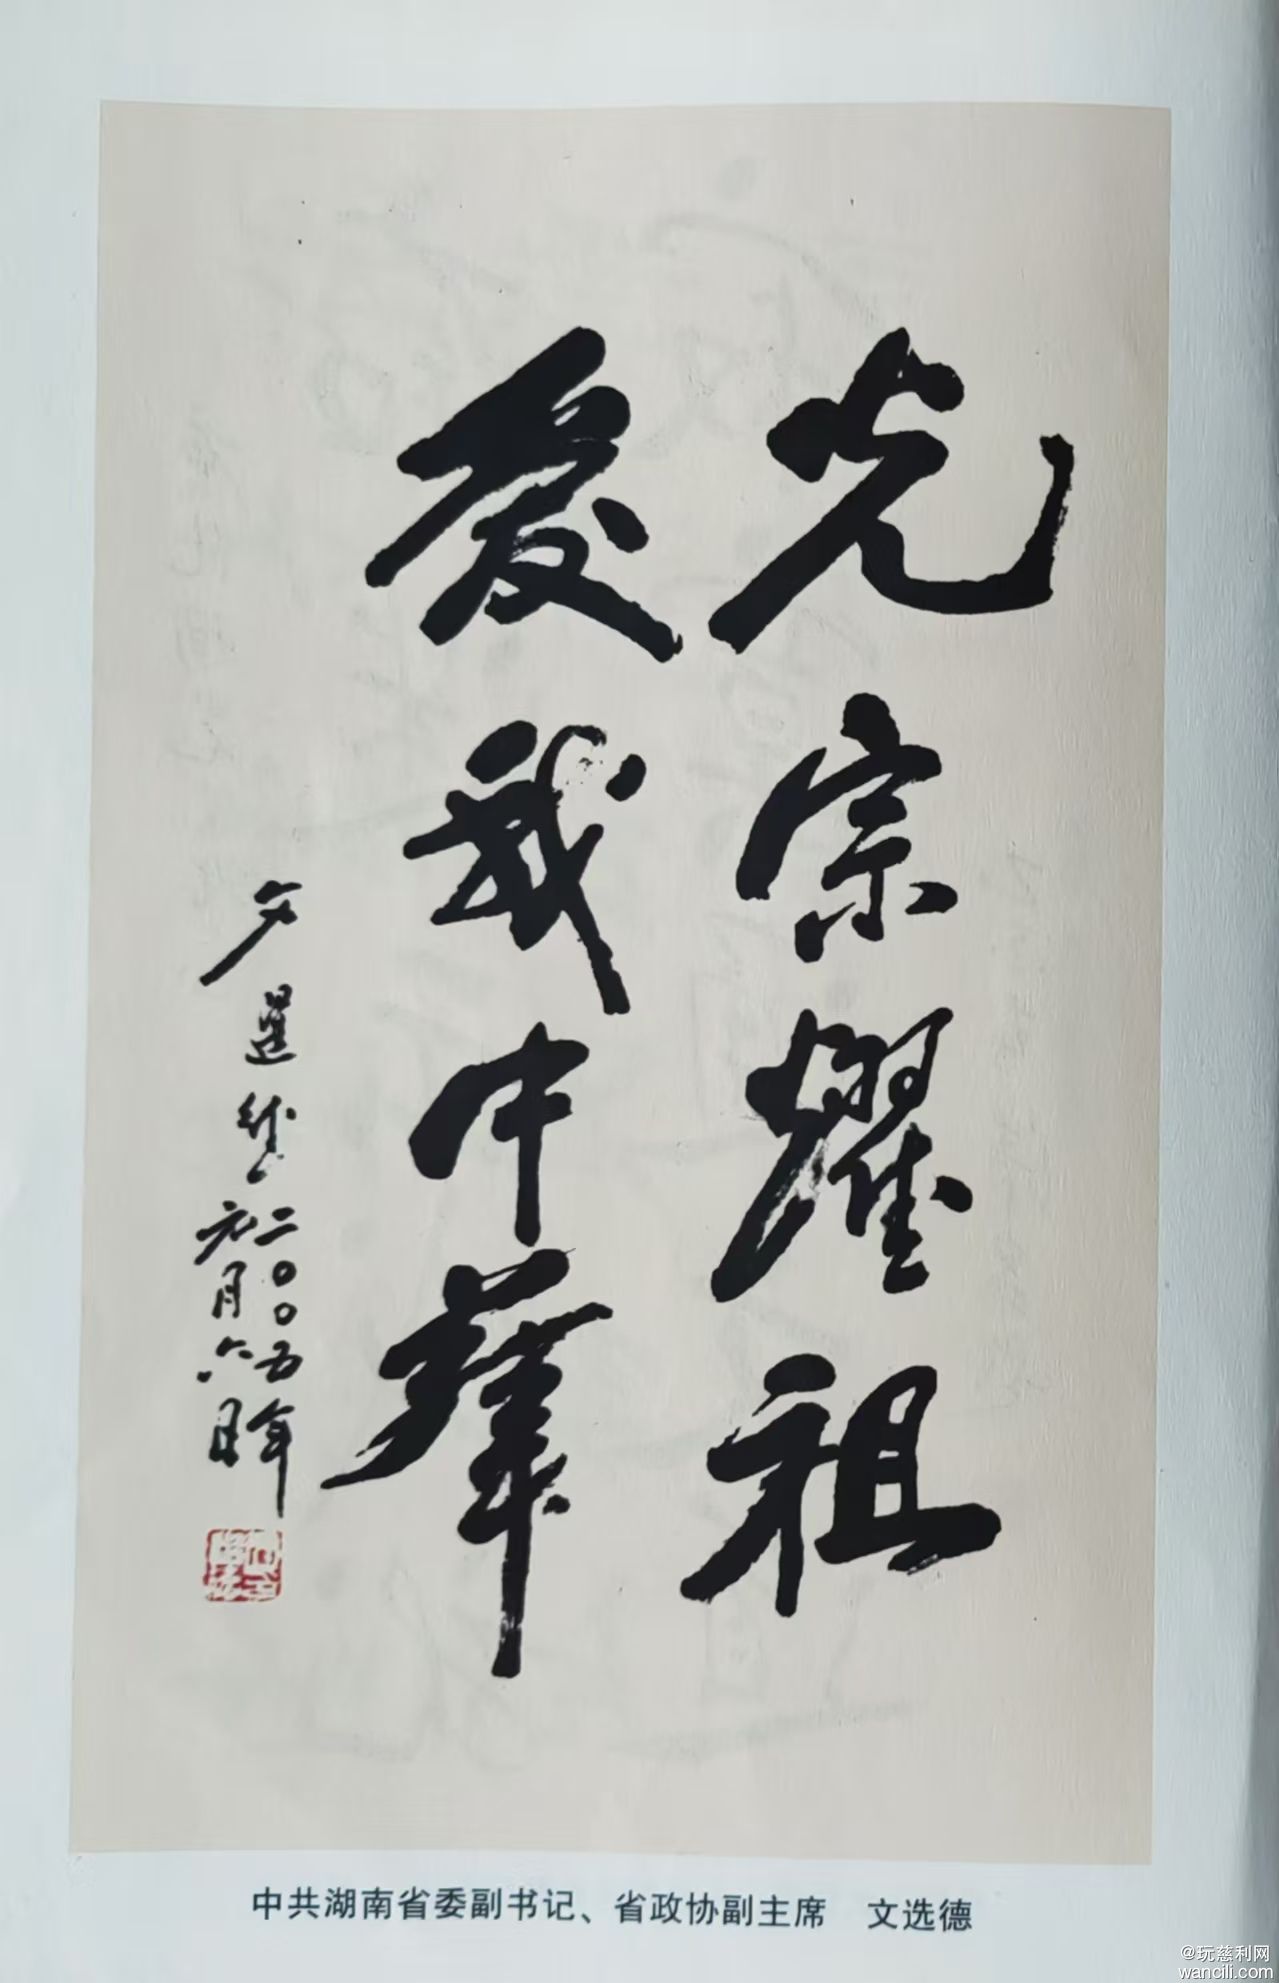 光宗耀祖
爱我中华
文選德
二〇〇五年
六月六日
中共湖南省委副书记、省政协副主席 文选德
@玩慈利网
wancili.com